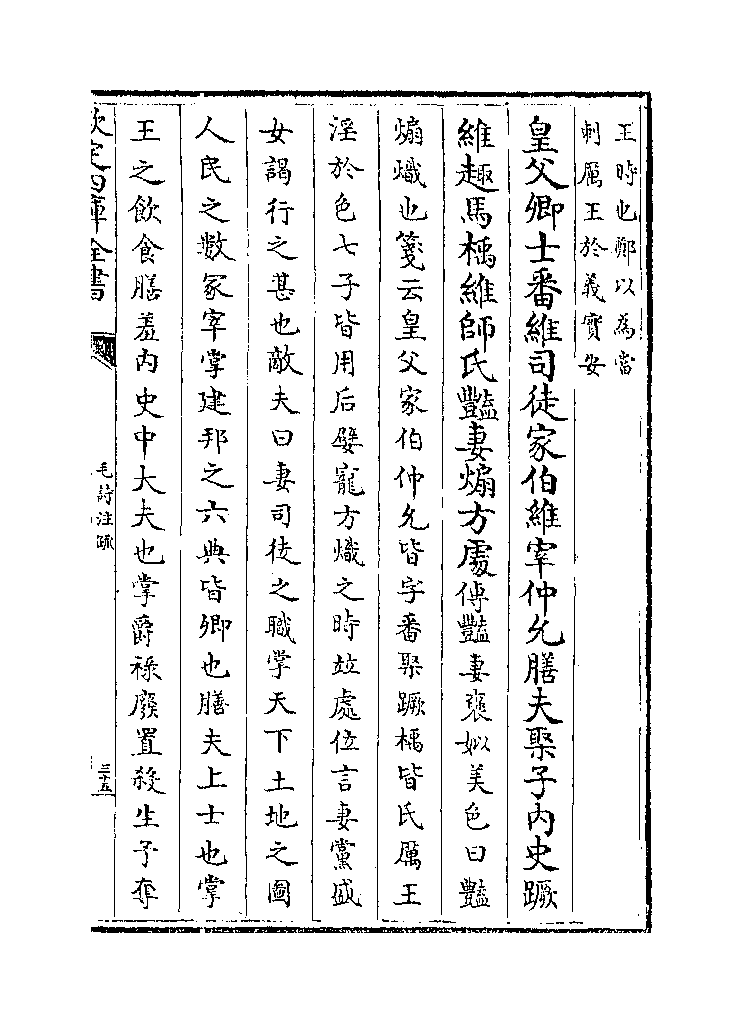 王時也鄭以為當
刺厲王於義實安
皇父卿士番維司徒家伯維宰仲允膳夫棸子內史蹶
維趣馬楀維師氏豔妻煽方處傳豔妻襃姒美色曰豔
煽熾也箋云皇父家伯仲允皆字番棸蹶楀皆氏厲王
淫於色七子皆用后嬖寵方熾之時並處位言妻黨盛
女謁行之甚也敵夫曰妻司徒之職掌天下土地之圖
人民之數冢宰掌建邦之六典皆卿也膳夫上士也掌
王之飲食膳羞內史中大夫也掌爵祿廢置殺生予奪
欽定四庫全書
毛詩注疏
三十五